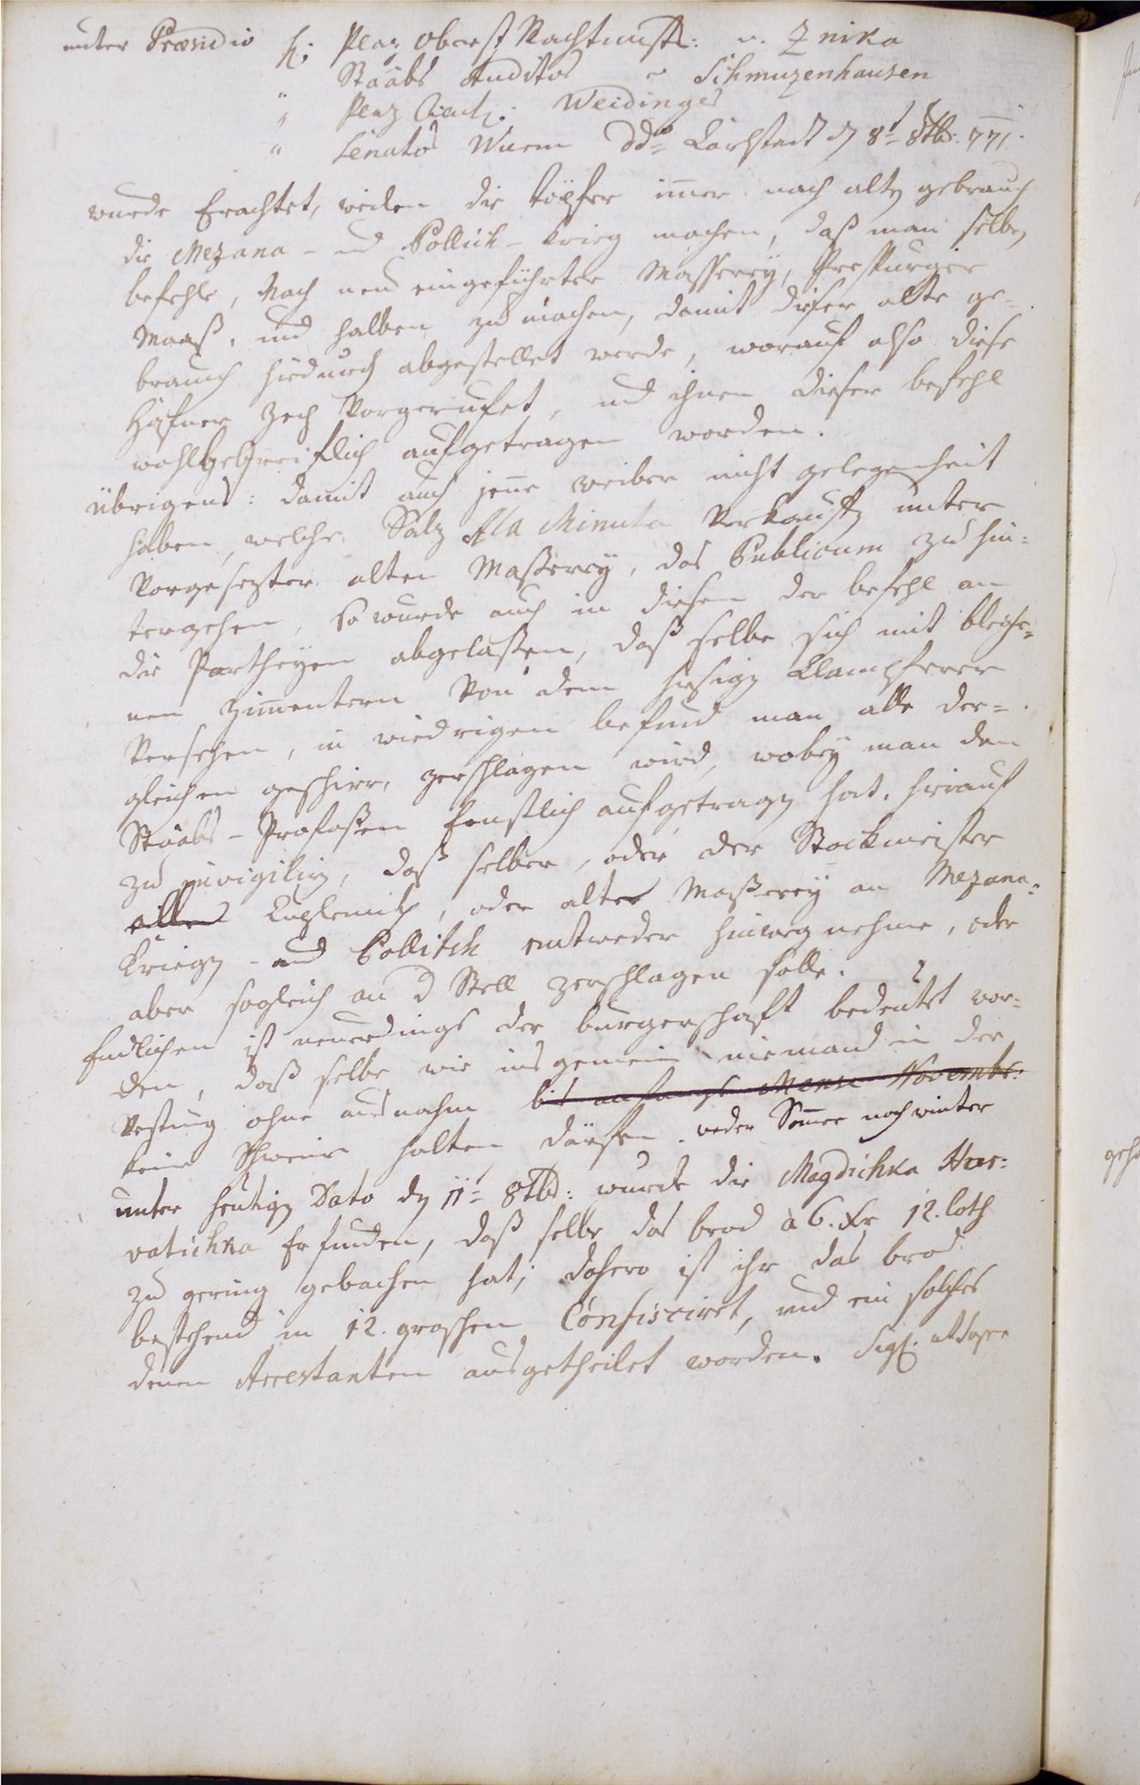 unter Præsidio H: Plaz Obrist Wachtmstr: v. Znika
Staabs Auditor v Schmuzenhausen
" Plaz Lieut: Weidinger
" Senator Wurm dd= Carlstadt d 8t= 8tbr: 771.
wurde Erachtet, weilen die töpfer imer nach altn gebrauch
die Mezana - und Pollich - Krieg machen, daß man selbn
befehle, Nach neu eingeführter Masserey, Prespurger
Maaß, und halben zu machen, damit diser alte ge=
brauch hiedurch abgestellet werde, worauf also diese
Hafner Zech Vorgeruft, und ihnen dieser befehl
wohlbegreiflich aufgetragen worden.
übrigens: damit auch jene weiber nicht gelegenheit
haben, welche Salz alla Minuta Verkaufn unter
Vorgesezter alten Masserey, das Publicum zu hin=
tergehen, so wurde auch in diesen der befehl an
die Partheyen abgelassen, daß selbe sich mit bleche=
nen Zimentern Von dem hiesign Klampferer
Versehen, in wiedrigen befund man alle der=
gleichen geschirr, zerschlagen wird, wobey man den
Staabs - Profosen Ernstlich aufgetragn hat, hierauf
zu invigilirn, daß selber, oder der Stockmeister
oder alter Masserey an Mezana=
Kriegn - und Pollitsch entweder hinweg nehme, oder
aber sogleich an d Stell zerschlagen solle.
Endlichen ist neuerdings der burgerschaft bedeutet wor=
den, daß selbe wie ins gemein niemand in der
Vestung ohne ausnahm bis anfangs Mense Novembr:
keine Schwein halten därfen. weder Somer noch winter
unter heutign Dato dn 11t= 8tbr: wurde die Magdichka Hor=
vatichka Erfunden, daß selbe das brod à 6. Xr 12. loth
zu gering gebachen hat; dahero ist ihr das brod
bestehend in 12. groschen Confisciret, und ein solches
denen Arrestanten ausgetheilet worden. Sigl: ut supra